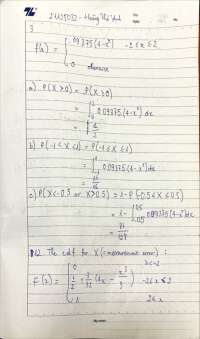 3
f(x) = { 0.09375(4-x²) -2≤x≤2
0 otherwise
a) P(X > 0) = P(X ≥ 0)
= ∫ 0.09375(4-x²) dx
= 1/2
b) P(-1<X<1) = P(-1≤X≤1)
= ∫ 0.09375(4-x²) dx
= 11/16
c) P(X<-0.5 or X>0.5) = 1 - P(-0.5≤X≤0.5)
= 1 - ∫ 0.09375(4-x²) dx
= 81/128
The cdf for X (= measurement error) :
F(x) = { 0 x<-2
1/2 + 3/32 (4x - x³/3) -2≤x<2
1 2≤x